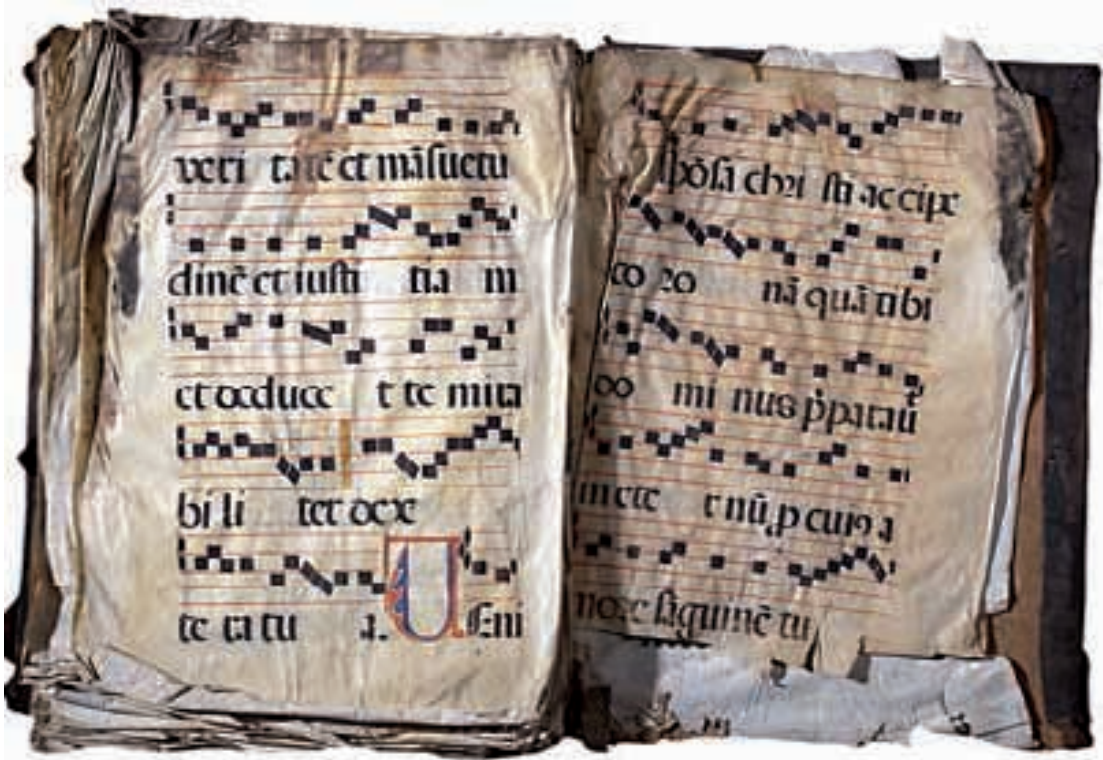 veri ta tē et mãſuetu
dinē et iuſti tia m
et deduce t te mira
bi li ter dex
te ra tu a. UEni
ſpōſa chri ſti ac cipe
co ro nã quã tibi
do mi nus p̄parau
in ete r nũ, p cuiꝰ a
more ſãguinē tu